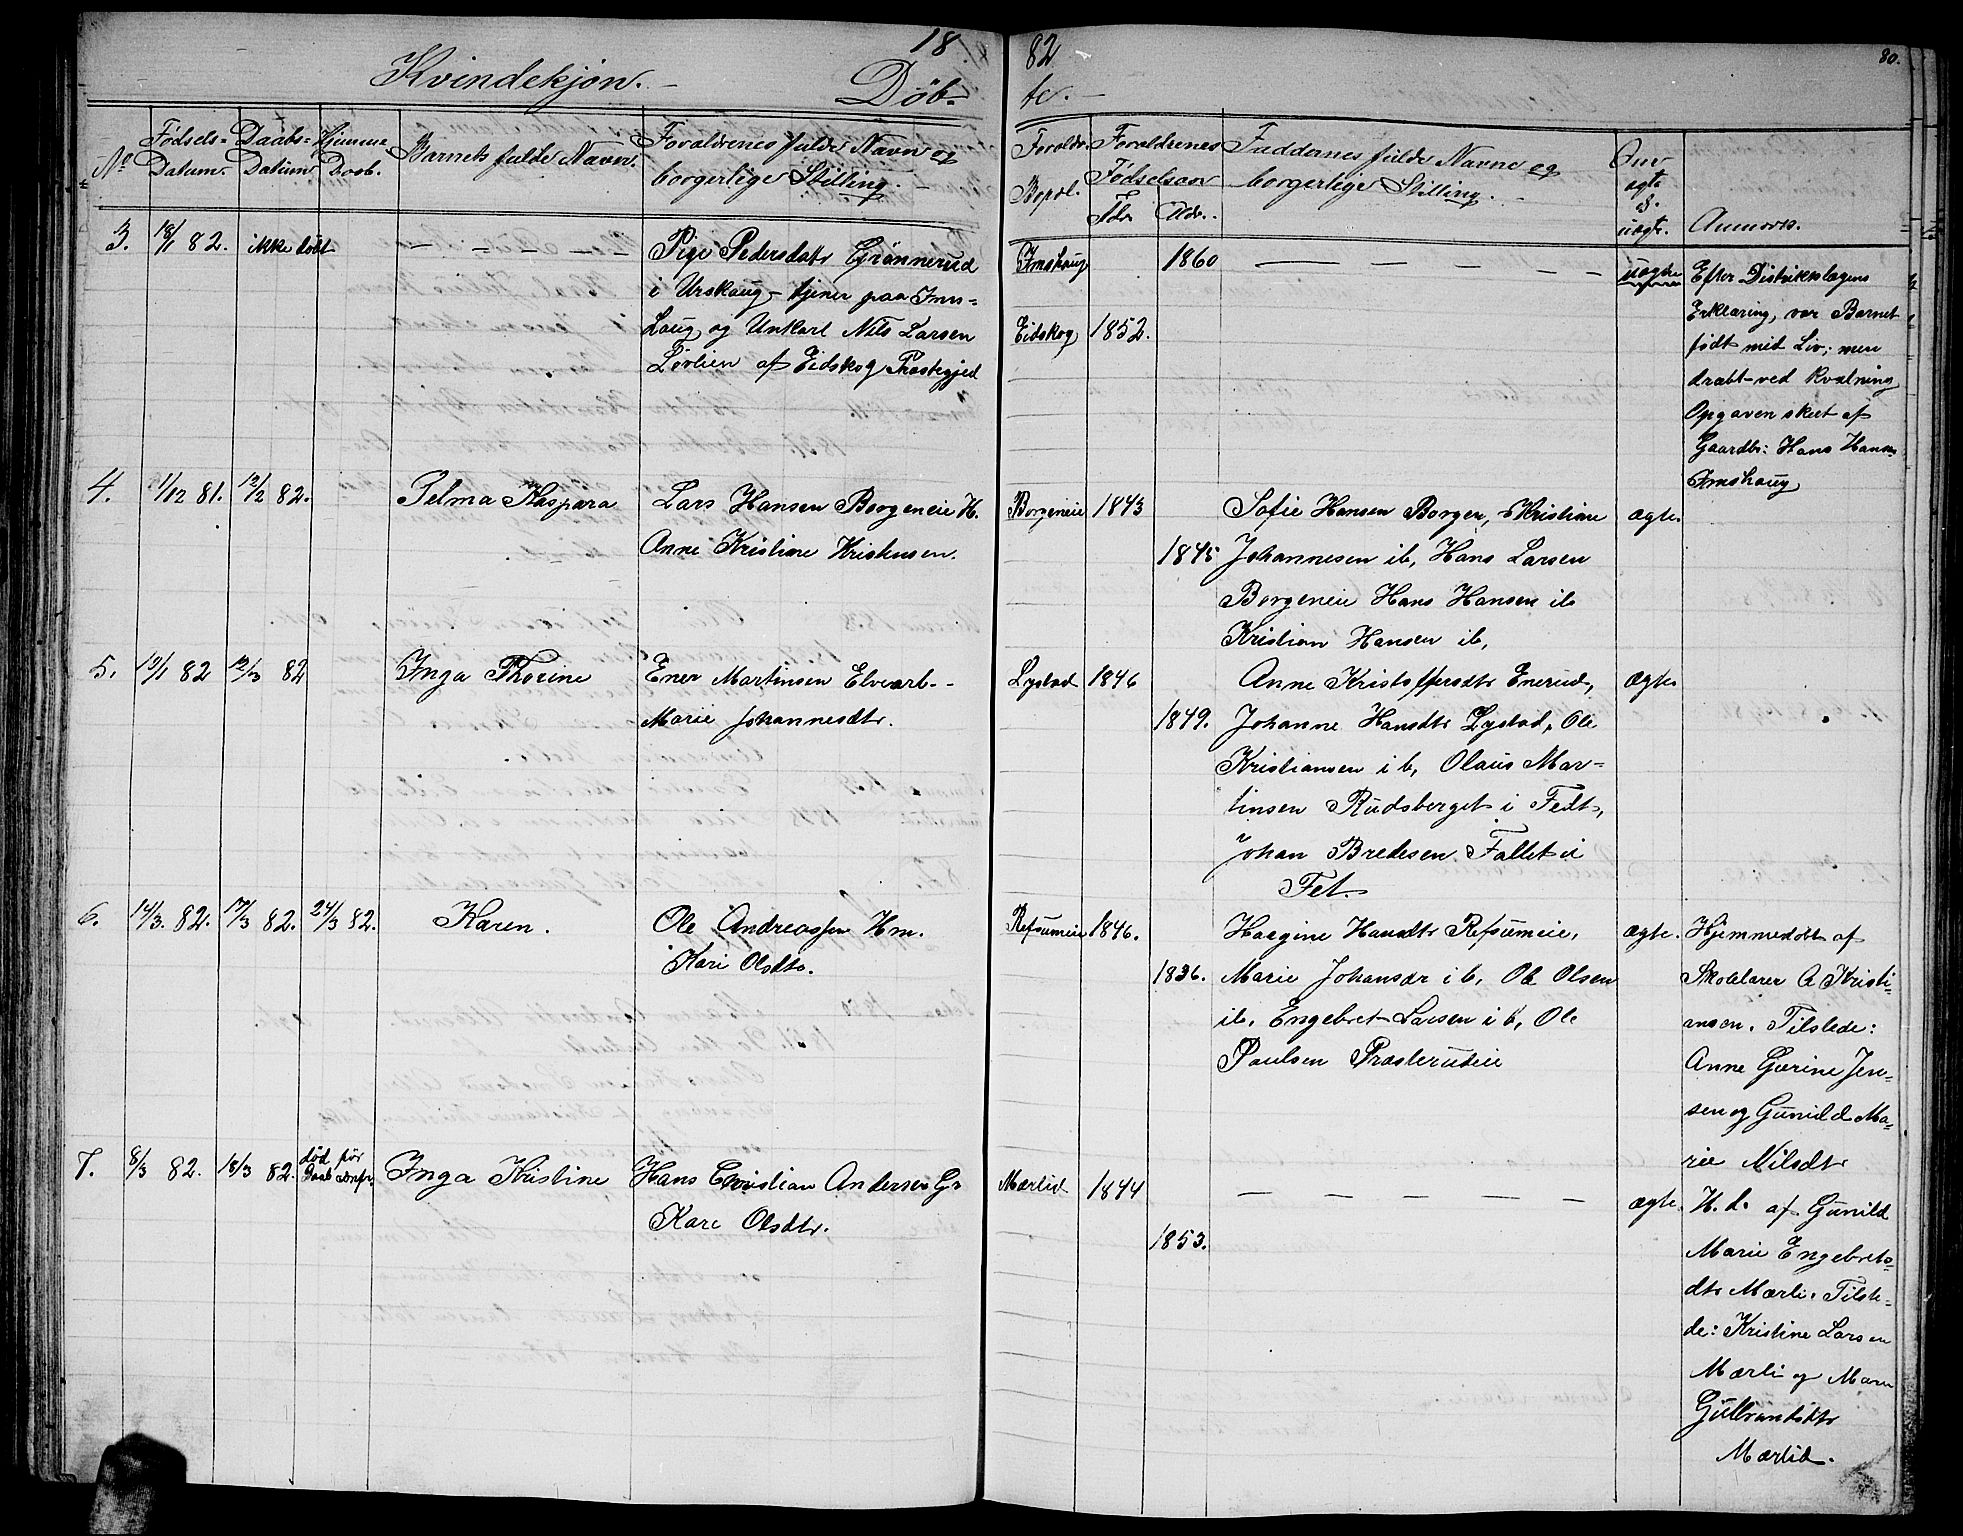 18 82
80.
Kvindekjøn. Døb- te.
No Fødsels- Datum. Daabs- Datum Hjemme Daab. Barnets fulde Navn. Forældrenes fulde Navn og borgerlige Stilling.
Forældr. Bopæl. Forældrenes Fødselsaar Fdr. Mdr. Faddernes fulde Navne og borgerlige Stilling. Om ægte el. uægte. Anmærk.
3. 18/1 82. ikke døbt
Pige Pedersdatr Grønnerud
i Urskaug tjener paa Ims-
haug og Unkarl Nils Larsen
Løvlien af Eidskog Præstegjed
Imshaug 1860 uægte
Eidskog 1852.
Efter Distriktslægens
Erklæring, var Barnet
født med Liv; men
dræbt ved Kvælning
Opgaven skeet af
Gaardbr: Hans Hansen
Imshaug
4. 11/12 81. 12/2 82. Pelma Kaspara
Lars Hansen Borgeneie H.
Anne Kristine Kristensen.
Borgeneie 1843
1845
Sofie Hansen Borgen, Kristiane
Johannesen ib, Hans Larsen
Borgeneie Hans Hansen ib
Kristian Hansen ib,
ægte
5. 19/1 82 12/3 82 Inga Thorine
Ener Martinsen Elvearb.
Marie Johannesdtr.
Lystad 1846
1849.
Anne Kristoffersdtr Enerud,
Johanne Hansdtr Lystad, Ole
Kristiansen ib, Olaus Mar-
tinsen Rudsberget i Fedt,
Johan Bredesen Fallet i
Fet.
ægte
6. 14/3. 82. 17/3 82. 24/3 82. Karen.
Ole Andreassen Hm.
Kari Olsdtr.
Refsumeie 1846.
1836.
Hargine Hansdtr Refsumeie,
Marie Johansdr ib, Ole Olsen
ib, Engebret Larsen ib, Ole
Paulsen Præsterudeie
ægte.
Hjemmedøbt af
Skolelærer A Kristi-
ansen. Tilstede:
Anne Gurine Jen-
sen og Gunild Ma-
rie Nilsdtr
7. 8/3 82. 18/3 82. død før Daab Inga Kristine
Hans Christian Andersen Gr
Kari Olsdtr.
Mærlid 1844
1853.
ægte.
H. d. af Gunild
Marie Engebrets-
dtr Mærli. Tilste-
de: Kristine Larsen
Mærli og Maren
Gulbrandsdtr
Mærlid.